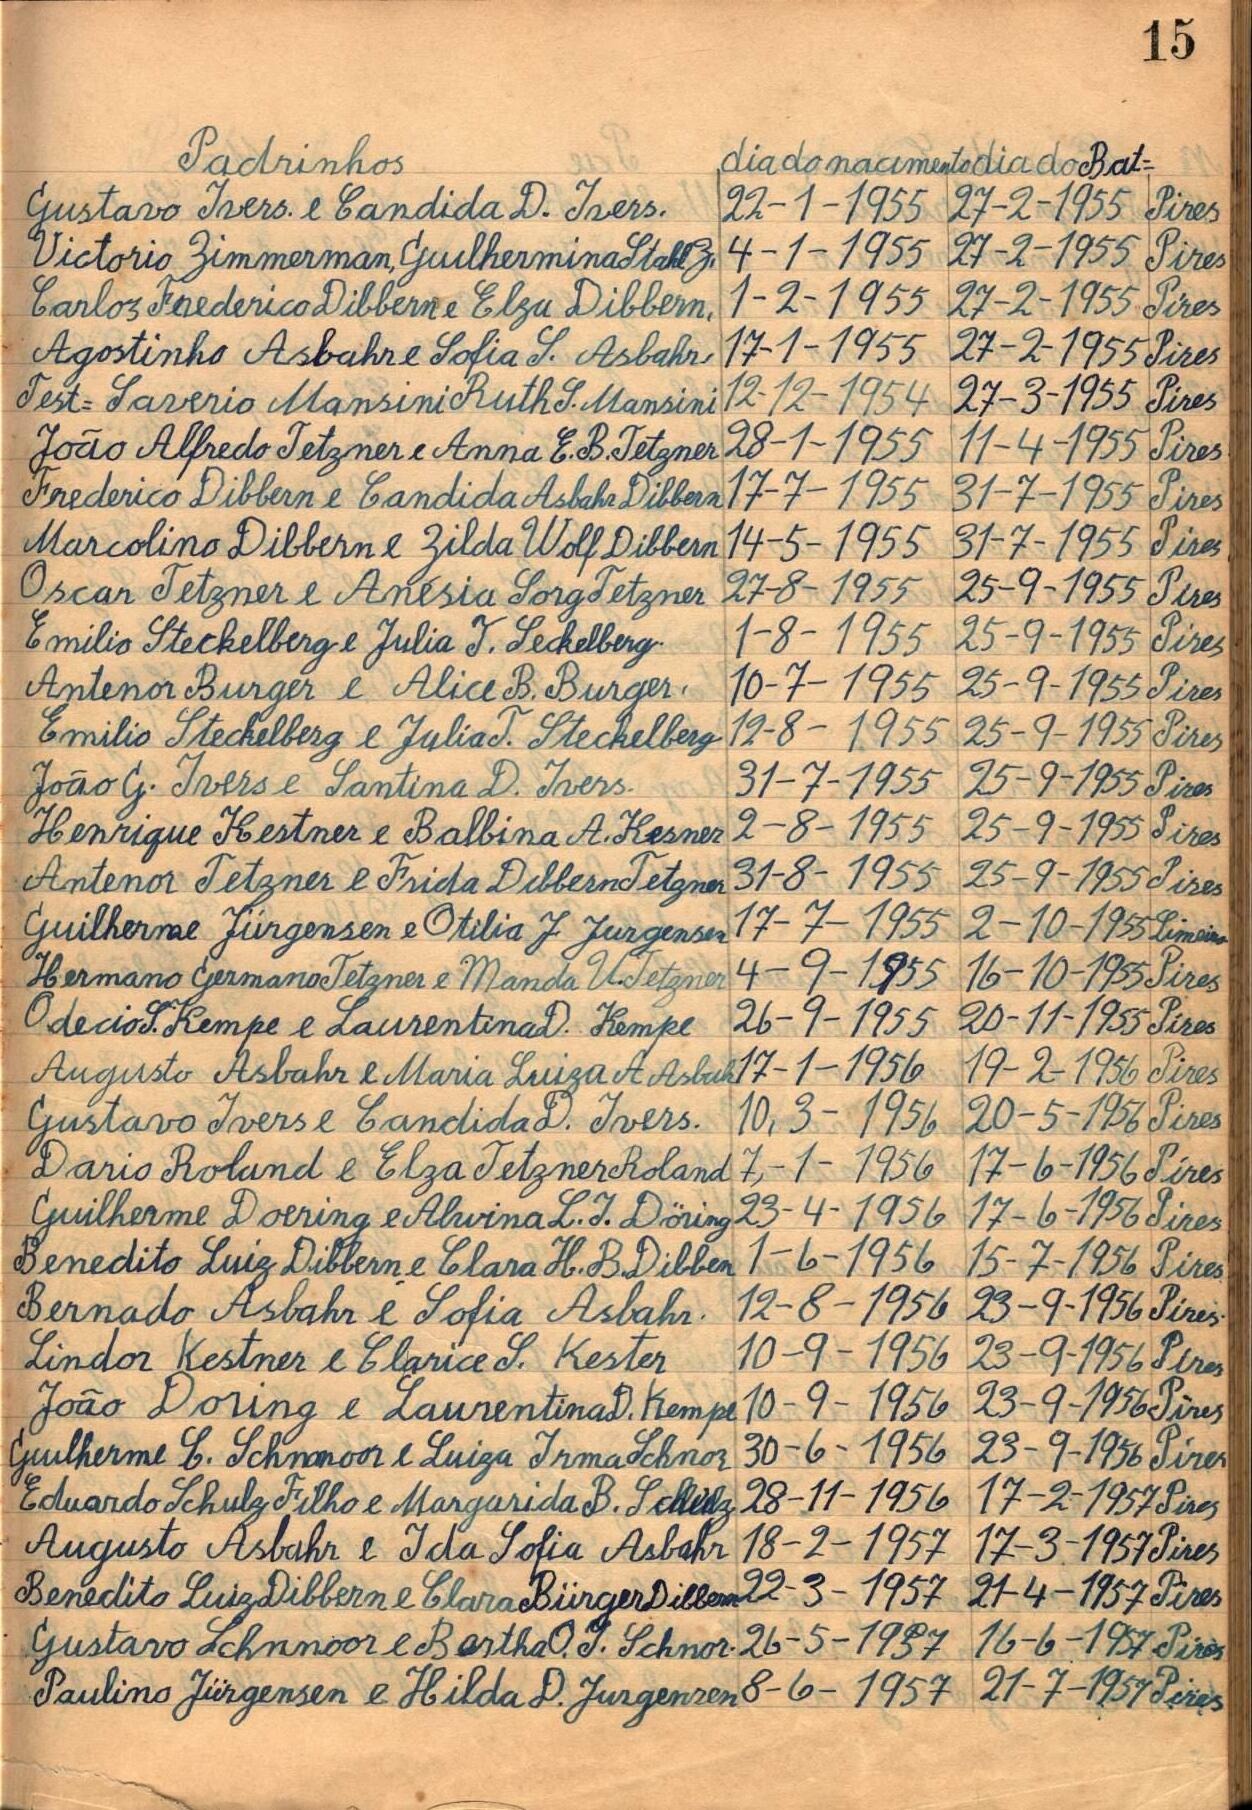 15
Padrinhos dia do nacimento dia do Bat=
Gustavo Ivers. e Candida D. Ivers. 22-1-1955 27-2-1955 Pires
Victorio Zimmerman, Guilhermina Stahl Z. 4-1-1955 27-2-1955 Pires
Carlos Frederico Dibbern e Elza Dibbern. 1-2-1955 27-2-1955 Pires
Agostinho Asbahr e Sofia S. Asbahr. 17-1-1955 27-2-1955 Pires
Test= Saverio Mansini Ruth S. Mansini 12-12-1954 27-3-1955 Pires
João Alfredo Tetzner e Anna E. B. Tetzner 28-1-1955 11-4-1955 Pires
Frederico Dibbern e Candida Asbahr Dibbern 17-7-1955 31-7-1955 Pires
Marcolino Dibbern e Zilda Wolf Dibbern 14-5-1955 31-7-1955 Pires
Oscar Tetzner e Anésia Sorg Tetzner 27-8-1955 25-9-1955 Pires
Emilio Steckelberg e Julia T. Seckelberg. 1-8-1955 25-9-1955 Pires
Antenor Burger e Alice B. Burger. 10-7-1955 25-9-1955 Pires
Emilio Steckelberg e Julia T. Steckelberg 12-8-1955 25-9-1955 Pires
João G. Ivers e Santina D. Ivers. 31-7-1955 25-9-1955 Pires
Henrique Kestner e Balbina A. Kesner 2-8-1955 25-9-1955 Pires
Antenor Tetzner e Frida Dibbern Tetzner 31-8-1955 25-9-1955 Pires
Guilherme Jürgensen e Otilia J Jurgensen 17-7-1955 2-10-1955 Limeira
Hermano Germano Tetzner e Manda U. Tetzner 4-9-1955 16-10-1955 Pires
Odecio S. Kempe e Laurentina D. Kempe 26-9-1955 20-11-1955 Pires
Augusto Asbahr e Maria Luiza A Asbah 17-1-1956 19-2-1956 Pires
Gustavo Ivers e Candida D. Ivers. 10,3-1956 20-5-1956 Pires
Dario Roland e Elza Tetzner Roland 7,-1-1956 17-6-1956 Pires
Guilherme Doering e Alwina L. J. Döring 23-4-1956 17-6-1956 Pires
Benedito Luiz Dibbern e Clara H. B. Dibben 1-6-1956 15-7-1956 Pires
Bernado Asbahr e Sofia Asbahr. 12-8-1956 23-9-1956 Pires.
Lindor Kestner e Clarice S. Kester 10-9-1956 23-9-1956 Pires
João Doring e Laurentina D. Kempe 10-9-1956 23-9-1956 Pires
Guilherme C. Schnmoor e Luiza Irma Schnor 30-6-1956 23-9-1956 Pires
Eduardo Schulz Filho e Margarida B. 28-11-1956 17-2-1957 Pires
Augusto Asbahr e Ida Sofia Asbahr 18-2-1957 17-3-1957 Pires
Benedito Luiz Dibbern e Clara Bürger Dibbern 22-3-1957 21-4-1957 Pires
Gustavo Schnmoor e Bertha O. J. Schnor. 26-5-1957 16-6-1957 Pires
Paulino Jürgensen e Hilda D. Jurgensen 8-6-1957 21-7-1957 Pires